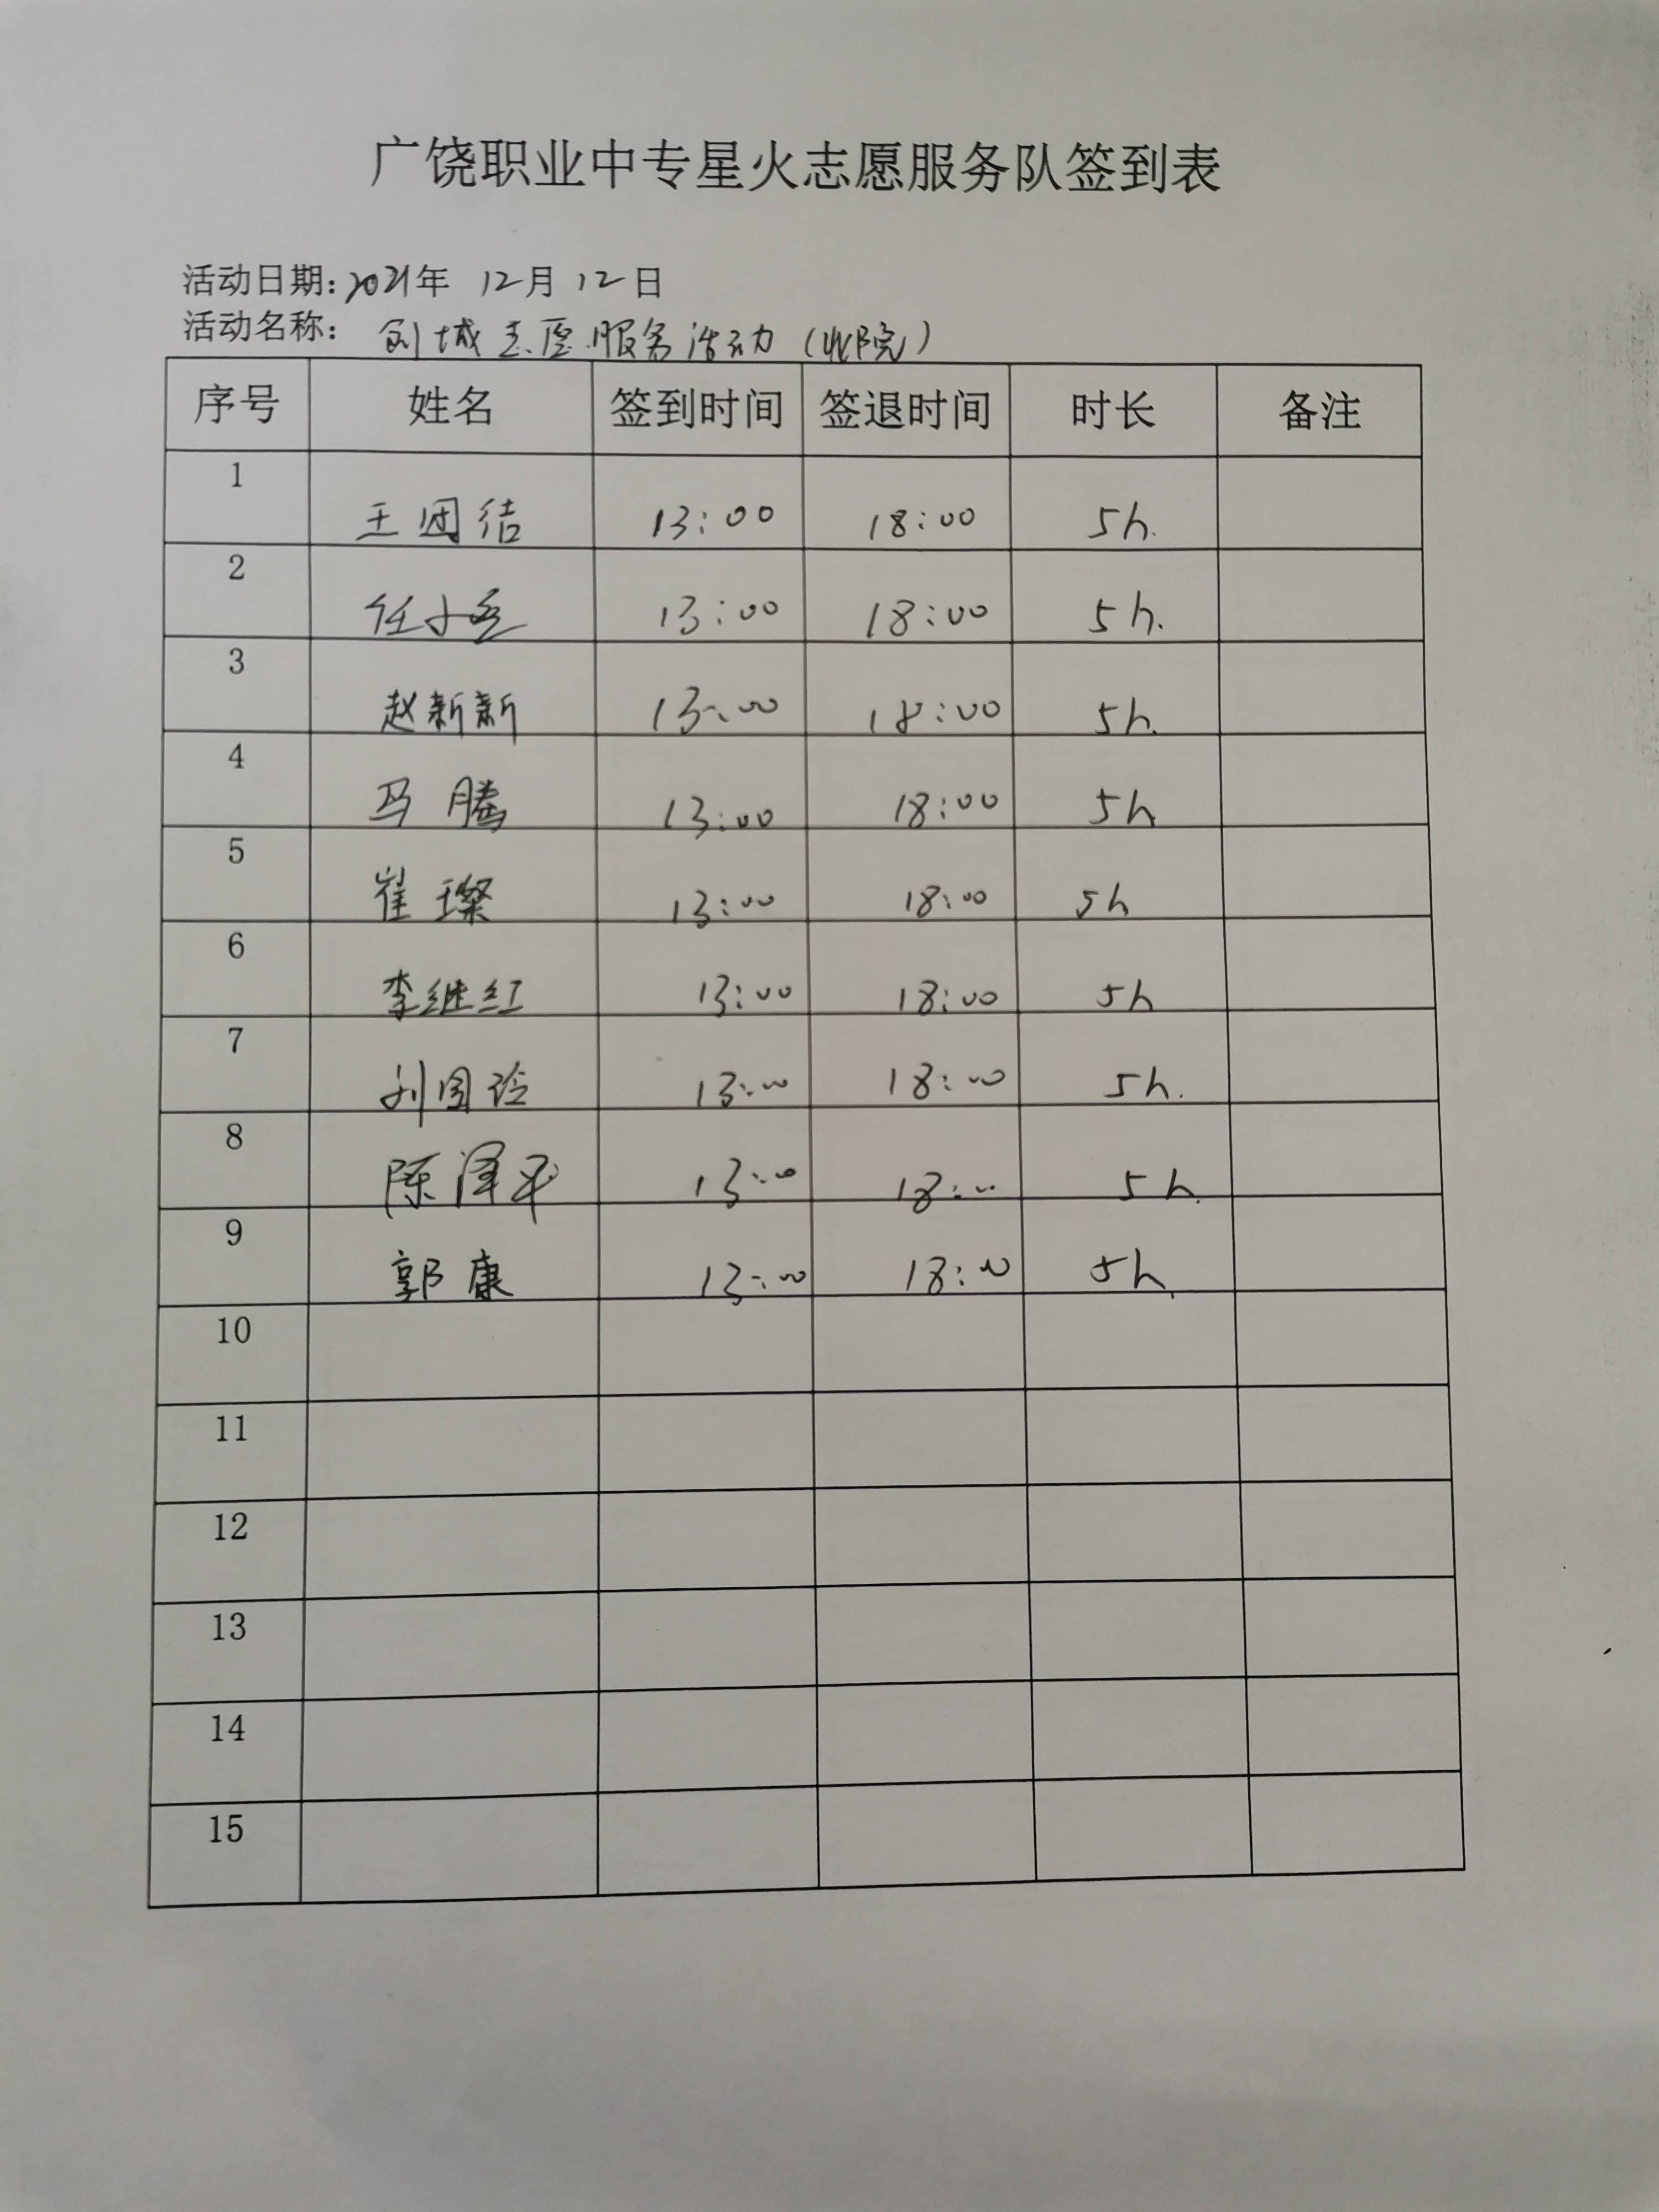 广饶职业中专星火志愿服务队签到表
活动日期：2021年 12月 12日
活动名称： 创城志愿服务活动（北院）
序号 姓名 签到时间 签退时间 时长 备注
1 王团结 13:00 18:00 5h.
2 任小 13:00 18:00 5h.
3 赵新新 13:00 18:00 5h.
4 马腾 13:00 18:00 5h
5 崔璨 13:00 18:00 5h
6 李继红 13:00 18:00 5h
7 刘国玲 13:00 18:00 5h.
8 陈泽平 13:00 18:00 5h.
9 郭康 13:00 18:00 5h
10
11
12
13
14
15